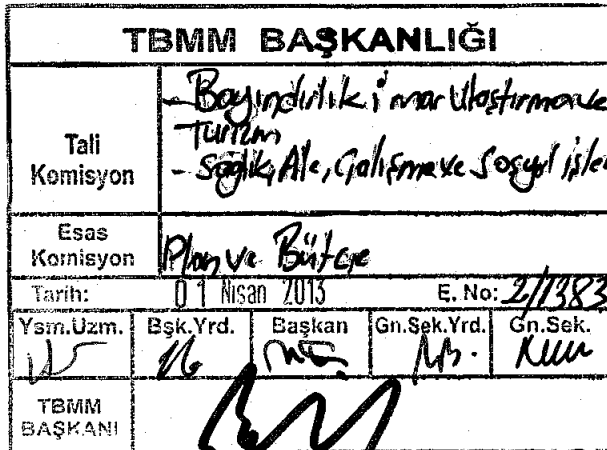 TBMM BAŞKANLIĞI
Tali Komisyon
- Bayındırlık imar Ulaştırma ve
Turizm
- Sağlık, Aile, Çalışma ve Sosyal işler
Esas Komisyon
Plan ve Bütçe
Tarih: 01 Nisan 2013 E. No: 2/1383
Ysm.Uzm. Bşk.Yrd. Başkan Gn.Sek.Yrd. Gn.Sek.
TBMM BAŞKANI